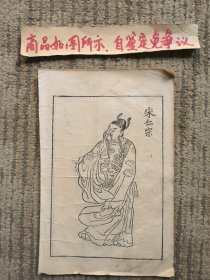 商品如图所示，自鉴定免争议
宋仁宗